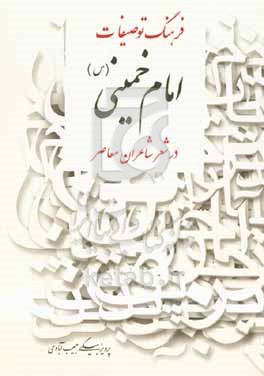 فرهنگ توصیفات
امام خمینی (س)
در شعر شاعران معاصر
پرویز بیگی حبیب‌آبادی